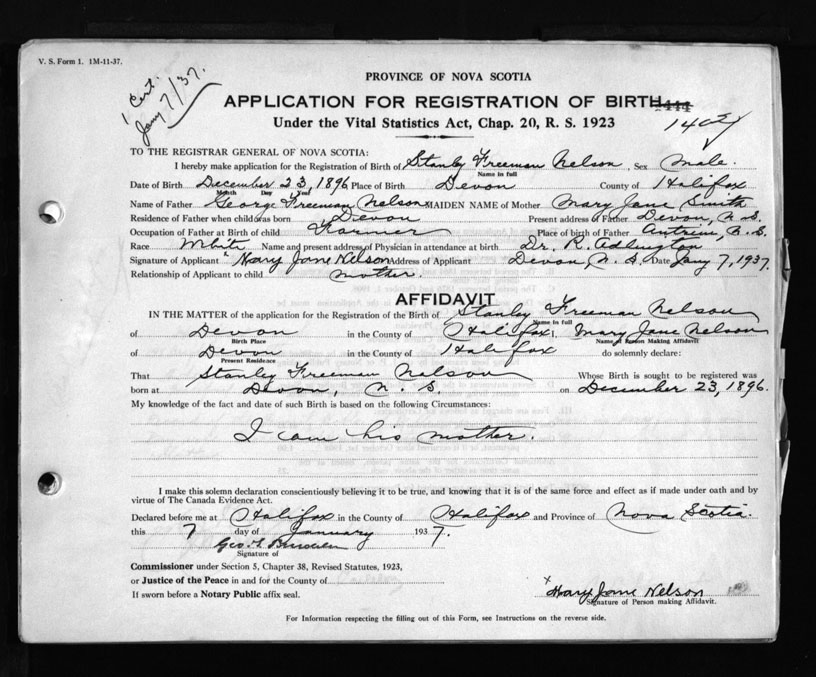 V. S. Form 1. 1M-11-37.
1 Cert.
Jany 7/37.
PROVINCE OF NOVA SCOTIA
APPLICATION FOR REGISTRATION OF BIRTH
Under the Vital Statistics Act, Chap. 20, R. S. 1923
TO THE REGISTRAR GENERAL OF NOVA SCOTIA:
I hereby make application for the Registration of Birth of Stanley Freeman Nelson, Sex Male.
Name in full
Date of Birth December 23, 1896 Place of Birth Devon County of Halifax
Month Day Year
Name of Father George Freeman Nelson MAIDEN NAME of Mother Mary Jane Smith
Residence of Father when child was born Devon Present address of Father Devon, N. S.
Occupation of Father at Birth of child Farmer Place of birth of Father Antrim, N. S.
Race White Name and present address of Physician in attendance at birth Dr. R. Adlington
Signature of Applicant x Mary Jane Nelson Address of Applicant Devon, N. S. Date Jany 7, 1937.
Relationship of Applicant to child mother.
AFFIDAVIT
IN THE MATTER of the application for the Registration of the Birth of Stanley Freeman Nelson
Name in full
of Devon in the County of Halifax I, Mary Jane Nelson
Birth Place Name of Person Making Affidavit
of Devon in the County of Halifax do solemnly declare:
Present Residence
That Stanley Freeman Nelson Whose Birth is sought to be registered was
born at Devon, N. S. on December 23, 1896.
My knowledge of the fact and date of such Birth is based on the following Circumstances:
I am his mother.
I make this solemn declaration conscientiously believing it to be true, and knowing that it is of the same force and effect as if made under oath and by
virtue of The Canada Evidence Act.
Declared before me at Halifax in the County of Halifax and Province of Nova Scotia.
this 7 day of January 1937.
Geo.
Signature of
Commissioner under Section 5, Chapter 38, Revised Statutes, 1923,
or Justice of the Peace in and for the County of
If sworn before a Notary Public affix seal.
x Mary Jane Nelson
Signature of Person making Affidavit.
For Information respecting the filling out of this Form, see Instructions on the reverse side.